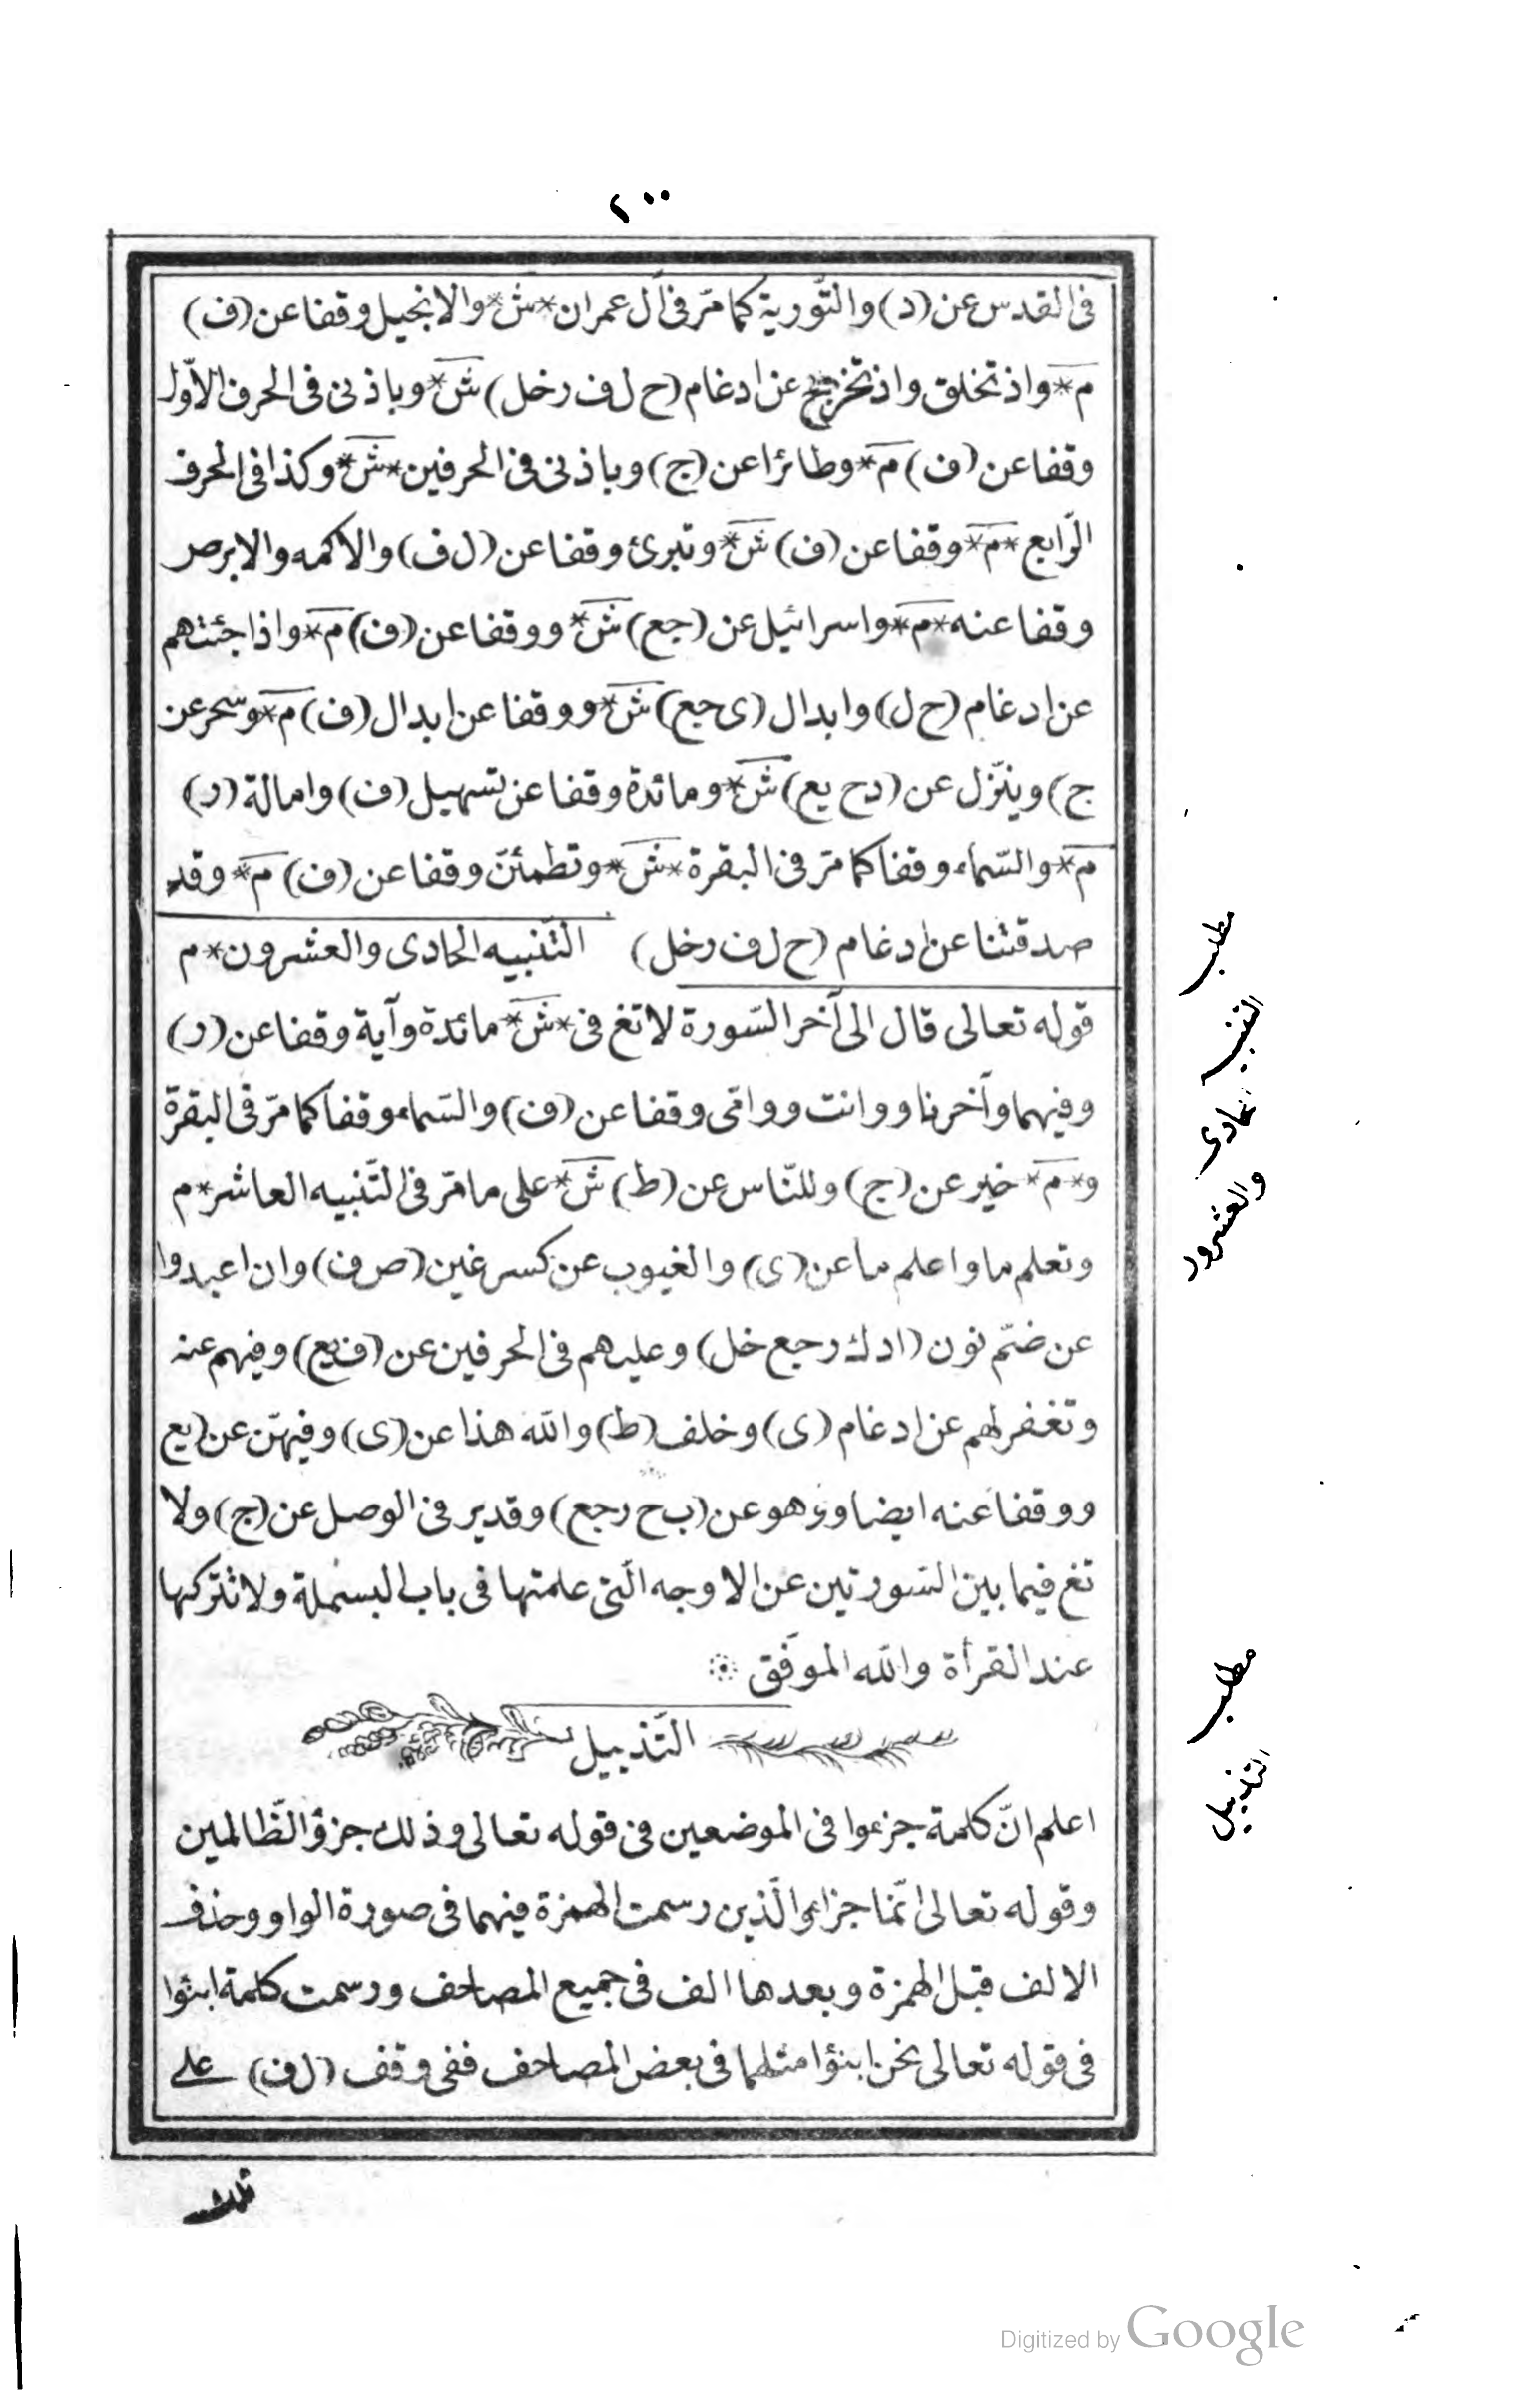 ٢٠٠
فى القدس عن (د) والتّورية كما مرّ فى آل عمران * ش * والانجيل وقفا عن (ف)
م * واذ تخلق واذ تخرج عن ادغام (ح ل ف رخل) ش * وباذنى فى الحرف الاوّل
وقفا عن (ف) م * وطائرا عن (ج) وباذنى فى الحرفين * ش * وكذا فى الحرف
الرّابع * م * وقفا عن (ف) ش * وتبرئ وقفا عن (ل ف) والاكمه والابرص
وقفا عنه * م * واسرائيل عن (جع) ش * ووقفا عن (ف) م * واذا جئتهم
عن ادغام (ح ل) وابدال (ى جع) ش * ووقفا عن ابدال (ف) م * وسحر عن
ج) وينزّل عن (دح يع) ش * ومائدة وقفا عن تسهيل (ف) وامالة (ر)
م * والسّماء وقفا كما مرّ فى البقرة * ش * وتطمئنّ وقفا عن (ف) م * وقد
صدقتنا عن ادغام (ح ل ف رخل) التّنبيه الحادى والعشرون * م
قوله تعالى قال الى آخر السّورة لا تغ فى * ش * مائدة وآية وقفا عن (ر)
وفيهما وآخرنا ووانت ووامّى وقفا عن (ف) والسّماء وقفا كما مرّ فى البقرة
و * م * خير عن (ج) وللنّاس عن (ط) ش * على ما مرّ فى التّنبيه العاشر * م
وتعلم ما واعلم ما عن (ى) والغيوب عن كسر غين (ص ف) وان اعبدوا
عن ضمّ نون (ادك رجع خل) وعليهم فى الحرفين عن (ف يع) وفيهم عنه
وتغفر لهم عن ادغام (ى) وخلف (ط) والله هذا عن (ى) وفيهنّ عن (يع
ووقفا عنه ايضا وو هو عن (ب ح رجع) وقدير فى الوصل عن (ج) ولا
تغ فيما بين السّورتين عن الاوجه الّتى علمتها فى باب البسملة ولا تتركها
عند القرأة والله الموفّق
التّذييل
اعلم انّ كلمة جزءوا فى الموضعين فى قوله تعالى وذلك جزؤ الظّالمين
وقوله تعالى انّما جزاءوا الّذين رسمت الهمزة فيهما فى صورة الواو وحذف
الالف قبل الهمزة وبعدها الف فى جميع المصاحف ورسمت كلمة ابنؤا
فى قوله تعالى نحن ابنؤا مثلهما فى بعض المصاحف ففى وقف (ل ف) على
مطلب
التنبيه
الحادى
والعشرون
مطلب
التذييل
Digitized by Google